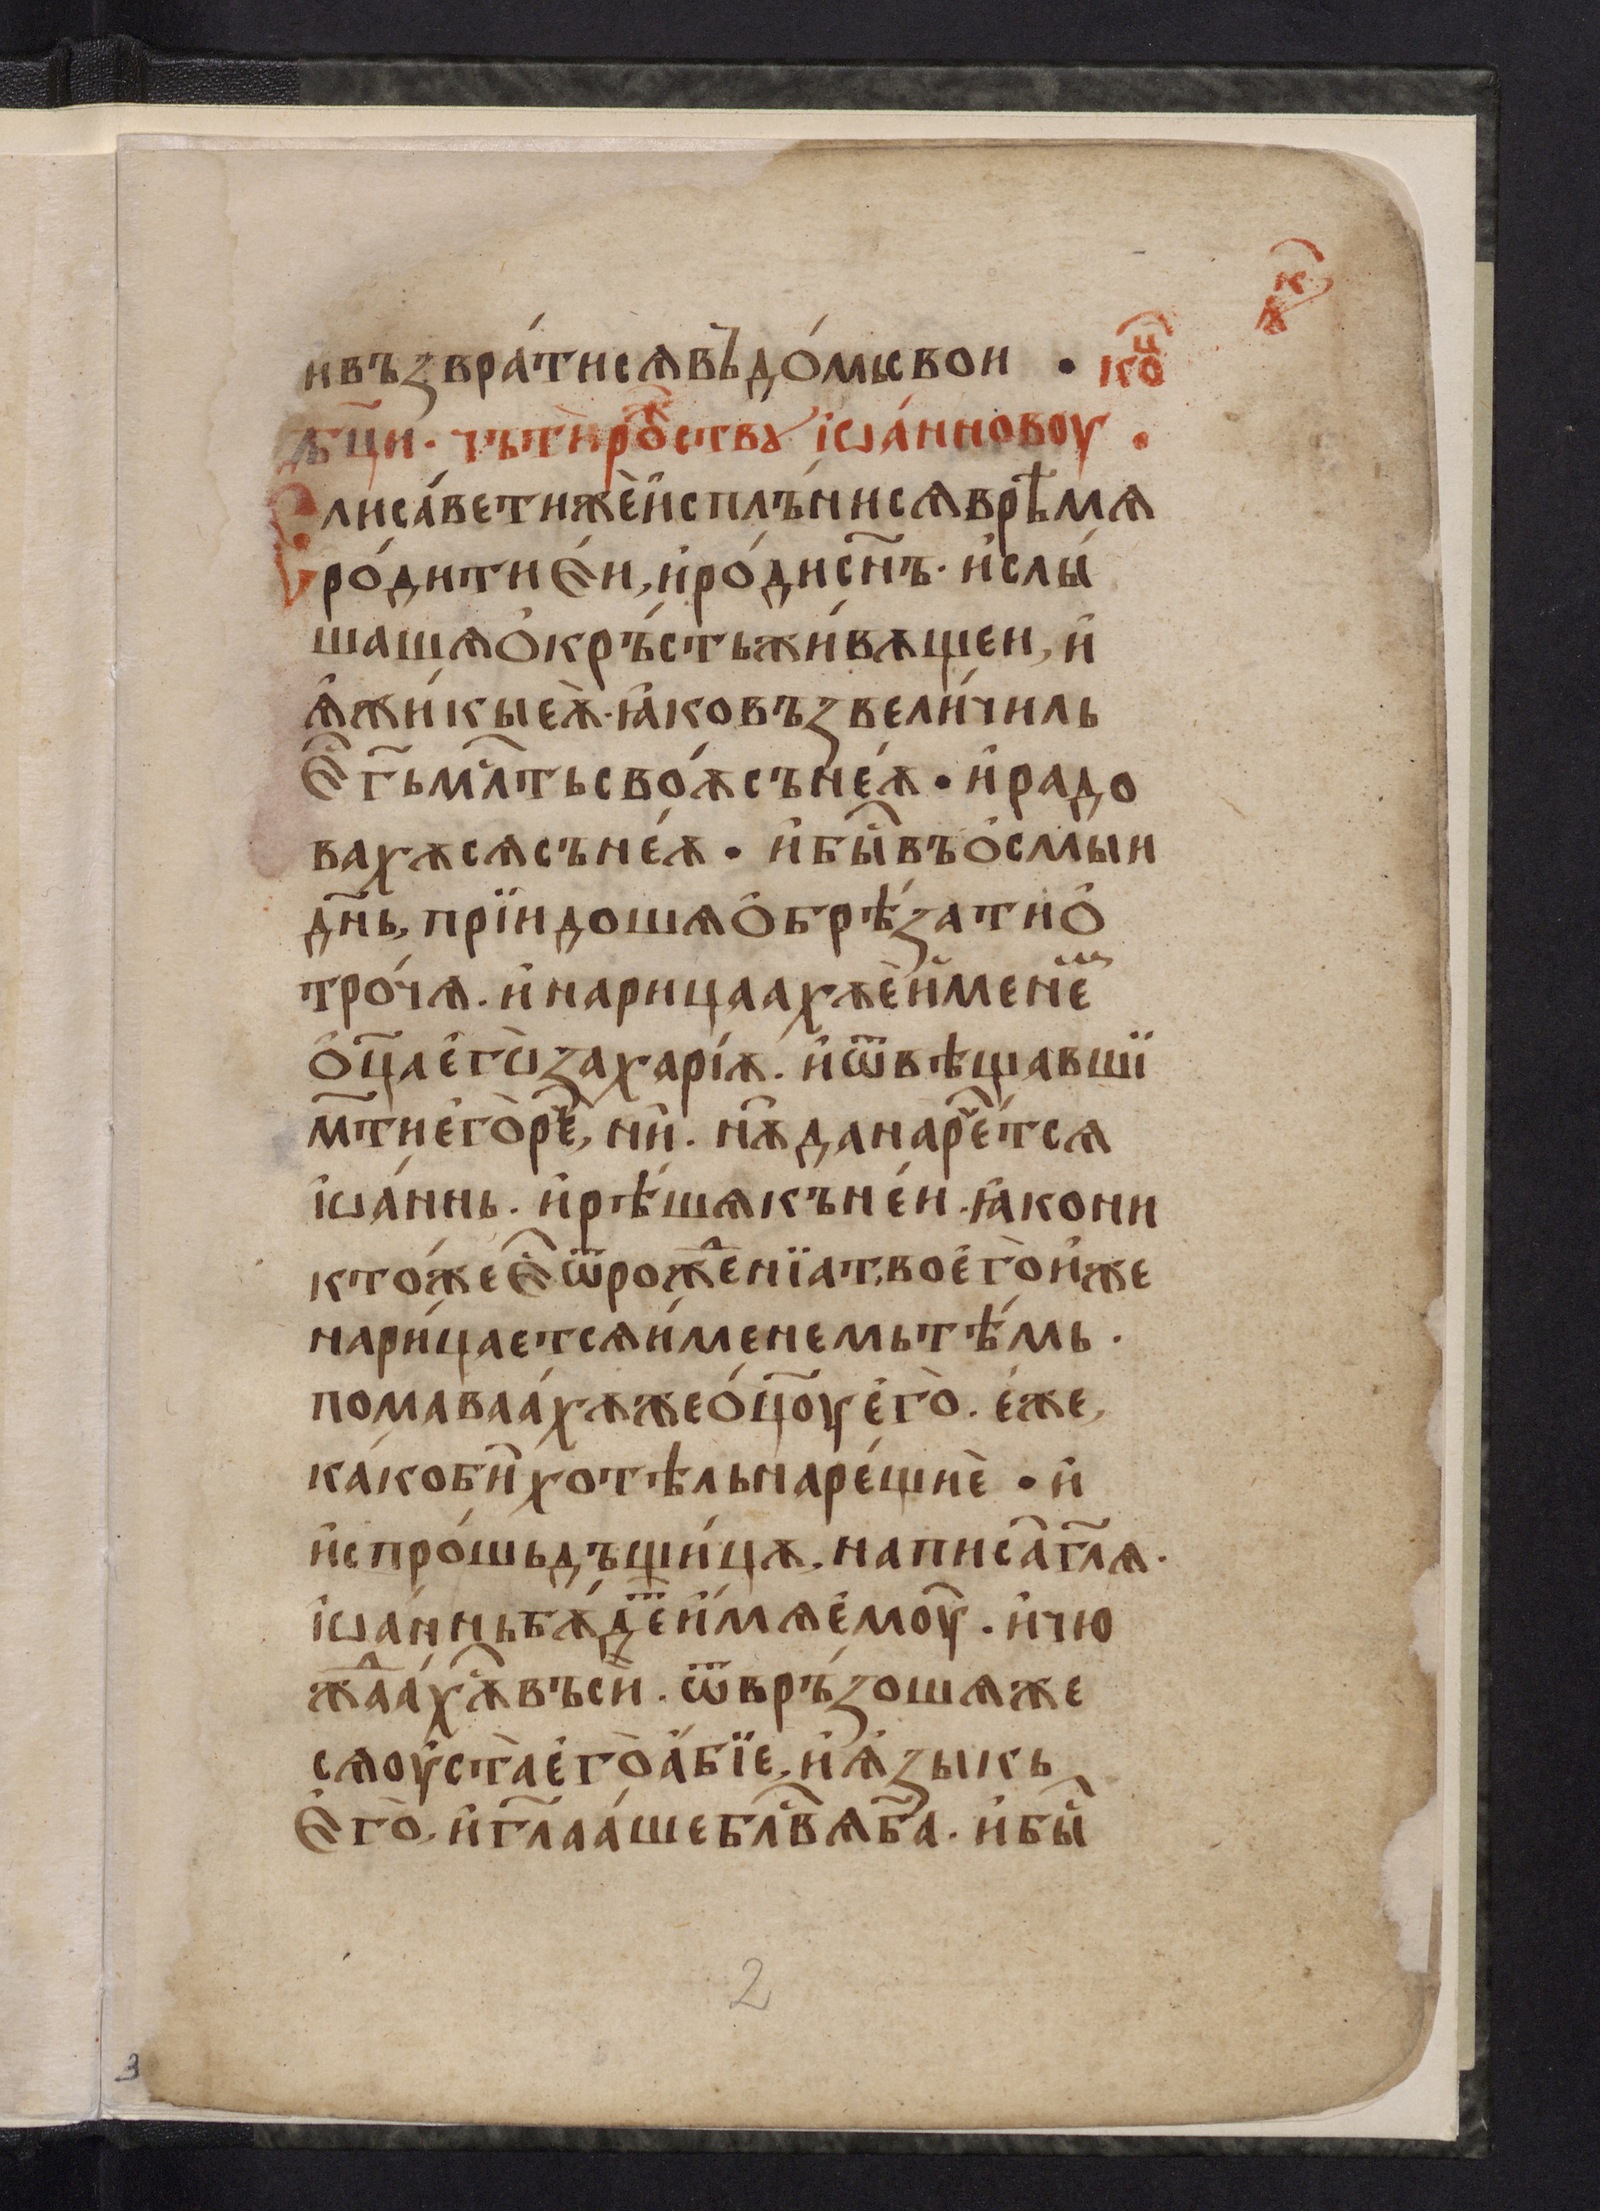 к҃
и҆възвра́тисѧвъдо́мьсвои • ко҃ц
дѣ҃ци · чьти̑рожⷭ҇твꙋ іѡа́нновоу •
Елиса́ветижѐи҆сплъ́нисѧврѣ́мѧ
ро́дитиє҆́и, и҆ро́диси҃ъ · и҆слы́
шашѧо҆крь́стьжи́вѫщеи, и҆
ѫ҆жи́кыеѧ̀ · ꙗ҆ковъзвели́чиль
є҆́гⷭ҇ьмлⷭ҇тьсвоѫ́сънеѧ́ • и҆радо
вахѫсѧсънеѧ́ • и҆бы̑въо҆смыи
дн҃ь, прїидошѧо҆брѣ́затио҆
тро́чѧ · и҆нарицаахѫѐи҆́менем
о҆ц҃ае҆гѡ̀захарі́ѫ · и҆ѿвѣщавшї
мт҃ие҆го̀рⷱ҇е, ни̑ · нѫ̑данарⷱ҇е́тсѧ
іѡа́ннь · и҆рѣ́шѧкъне́и · ꙗ҆кони
кто́жеє҆́ѿрожⷣе́нїатвое҆го̀и҆же
нари́цаетсѧи҆́менемьтѣ́мь ·
помаваа́хѫжео҆ц҃оуе҆го̀ · е҆́же,
ка́коби̑хотѣ́льнаре́щиѐ • и҆
и҆спро́шьдъщи́цѫ, написа̑гл҃ѧ ·
іѡа́нньбѫ́детⷮи҆́мѧе҆моу̑ · и҆чю
жⷣаа́хѫⷭвъси̑ · ѿвръ́зошѧже
сѧоу҆ста̀е҆го̀а҆́бїе, и҆ѧ҆зы́кь
є҆го̀, и҆гл҃аа́шеблⷭ҇вѧб҃а · и҆бы̑
2
3